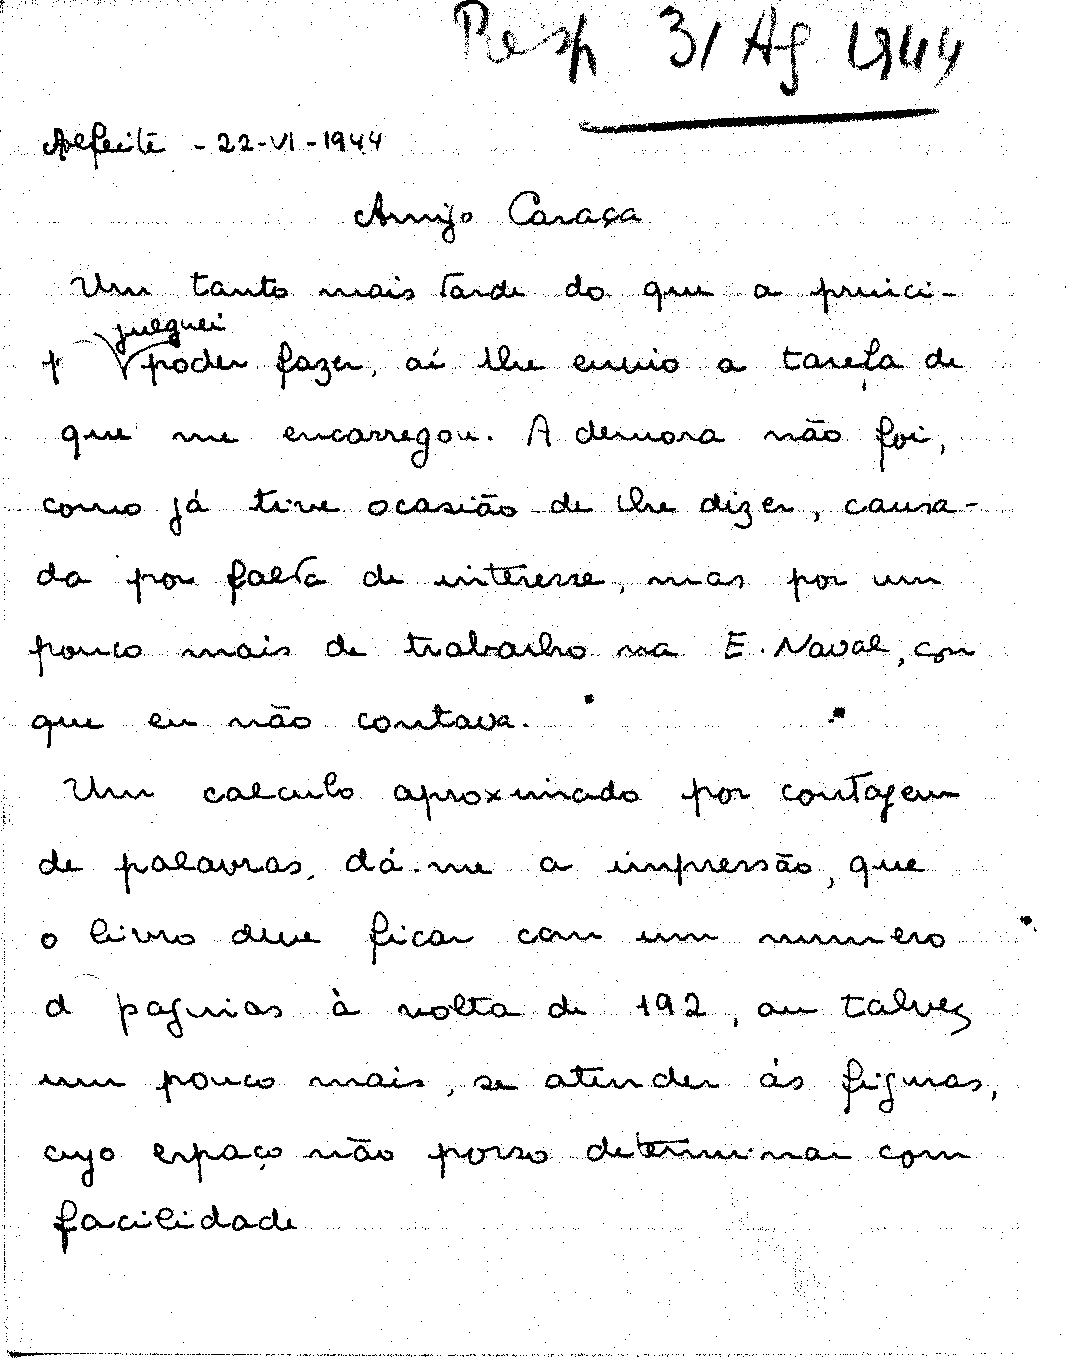 Resp 31 Ag 1944
Alfeite - 22-VI-1944
Amigo Caraça
Um tanto mais tarde do que a princi-
julguei
p poder fazer, aí lhe envio a tarefa de
que me encarregou. A demora não foi,
como já tive ocasião de lhe dizer, causa-
da por falta de interesse, mas por um
pouco mais de trabalho na E. Naval, com
que eu não contava.
Um calculo aproximado por contagem
de palavras, dá-me a impressão, que
o livro deve ficar com um numero
d paginas à volta de 192, ou talvez
um pouco mais, se atender ás figuras,
cujo espaço não posso determinar com
facilidade